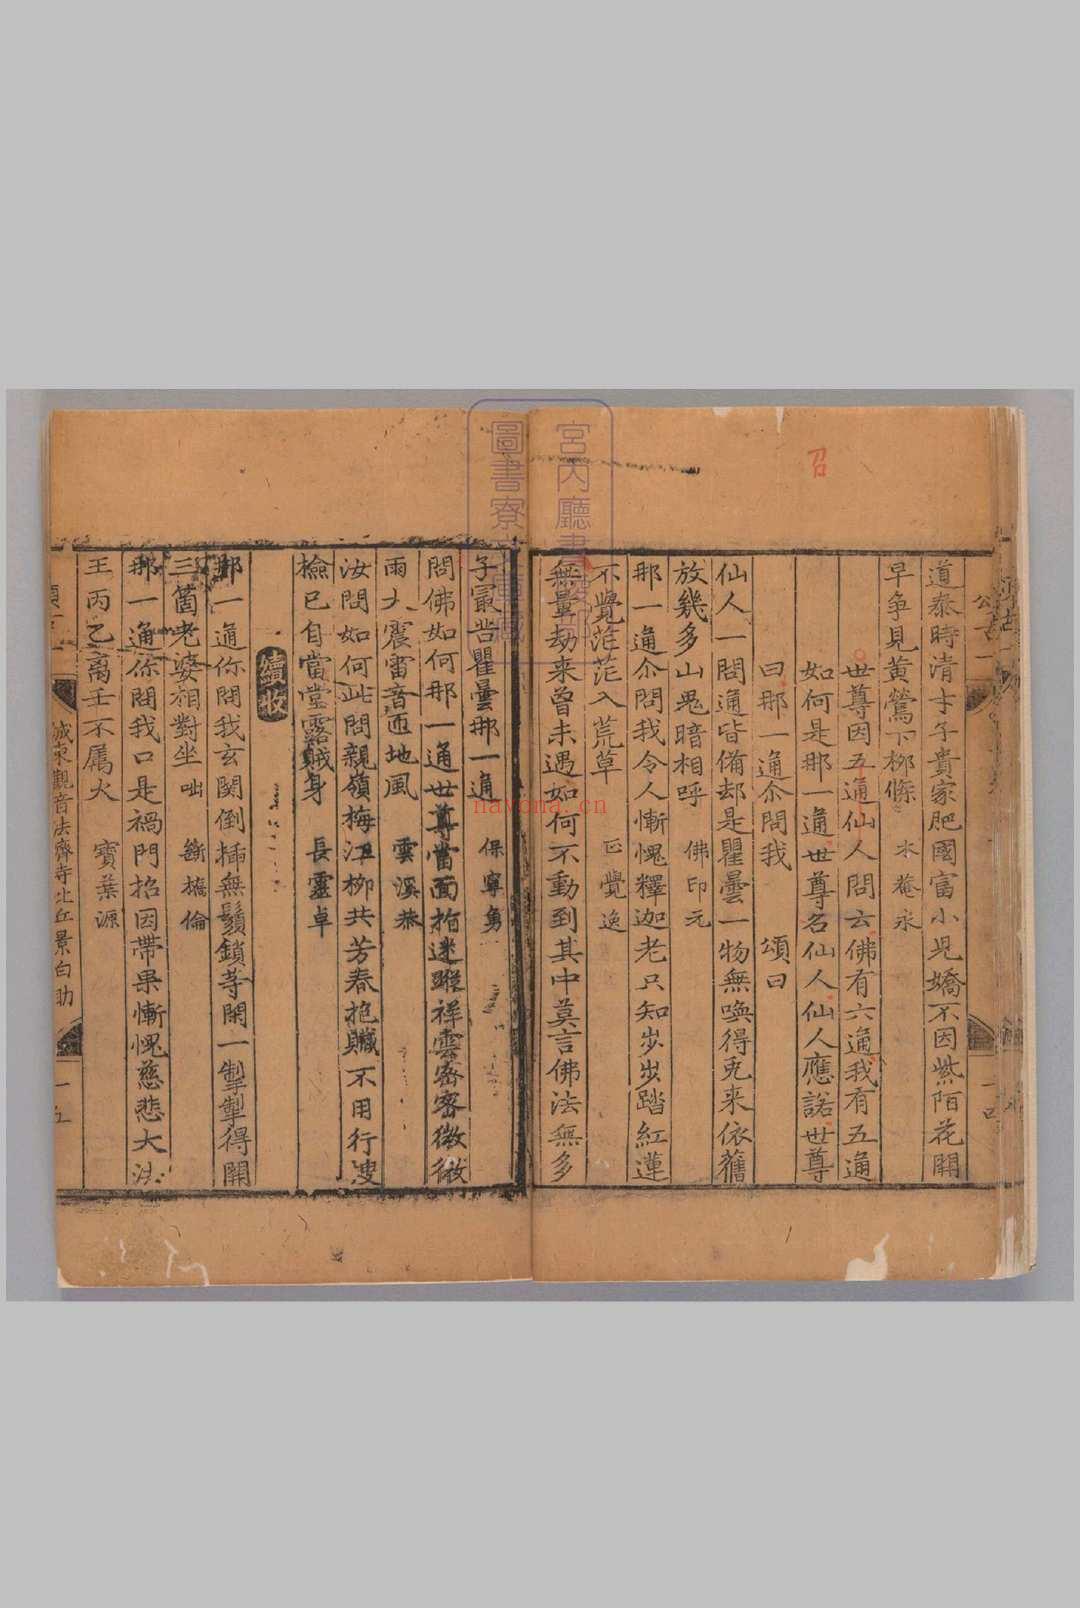 召
宮內廳書陵部
圖書寮文庫藏
道泰時清才子貴家肥國富小兒嬌不因紫陌花開
早争見黃鶯下柳條 木菴永
世尊因五通仙人問云佛有六通我有五通
如何是那一通世尊名仙人仙人應諾世尊
曰那一通尒問我 頌曰
仙人一問通皆俻却是瞿曇一物無喚得兎來依舊
放幾多山鬼暗相呼 佛印元
那一通尒問我令人慚愧釋迦老只知步步踏紅蓮
不覺茫茫入荒草 正覺逸
無量劫來曾未遇如何不動到其中莫言佛法無多
子冣苦瞿曇那一通 保寧勇
問佛如何那一通世尊當面指迷蹤祥雲密密微微
雨大震雷音匝地風 雲溪恭
汝問如何此問親嶺梅江柳共芳春抱贓不用行搜
檢已自當堂露賊身 長靈卓
續收
那一通你問我玄関倒插無鬚鎖等閑一掣掣得開
三箇老婆相對坐咄 斷橋倫
那一通你問我口是禍門招因帶果慚愧慈悲大
王丙乙离壬不属火 寶葉源
城東觀音法齊寺比丘景白助
一五
navona.cn